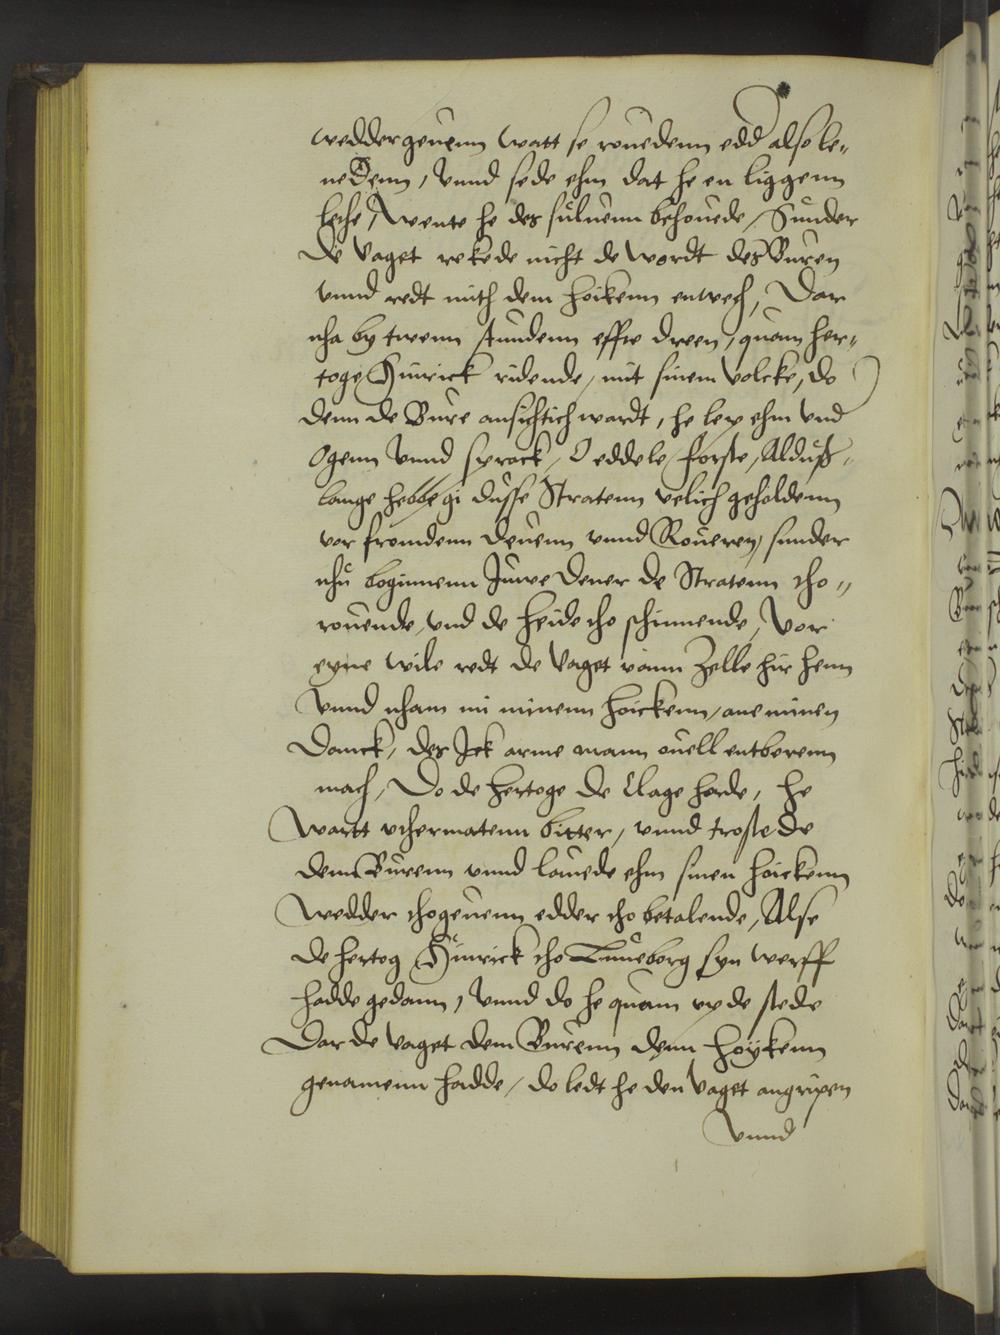 weddergeuenn watt se rouedenn edd also le„
nedenn, Vnnd sede ehm dat he en liggenn
lethe, Wente he des suluenn behouede, Sunder
De Vaget rekede nicht de wordt des Buren
vnnd redt mith dem hoikenn enwech, Dar
nha by twenn stundenn effte dreen, quam her„
toge Hinrick ridende, mit sinem volcke, do
denn de Bure ansichtich wardt, he lep ehm vnd
Ogenn Vnnd sprack, O eddele forste, Alduß„
lange hebbe gi dusse Stratenn velich geholdenn
vor fromdenn Deuenn vnnd Roueren, sunder
nhu beginnenn Juwe Dener de Stratenn tho„
rouende, vnd de heide tho schinnende, Vor
eyne wile redt de Vaget vann Zelle hir henn
Vnnd nham mi minenn hoickenn, ane minen
Danck, des Jck arme mann ouell entberenn
mach, Do de hertoge de Clage horde, he
Wartt vthermatenn bitter, vnnd trostede
dem Burenn vnnd lauede ehm sinen hoickenn
Wedder thogeuenn edder tho betalende, Alse
de hertog Hinrick tho Luneborg syn werff
hadde gedann, Vnnd do he quam vp de stede
Dar de Vaget dem Burenn denn hoykenn
genamenn hadde, do ledt he den Vaget angripen
Vnnd